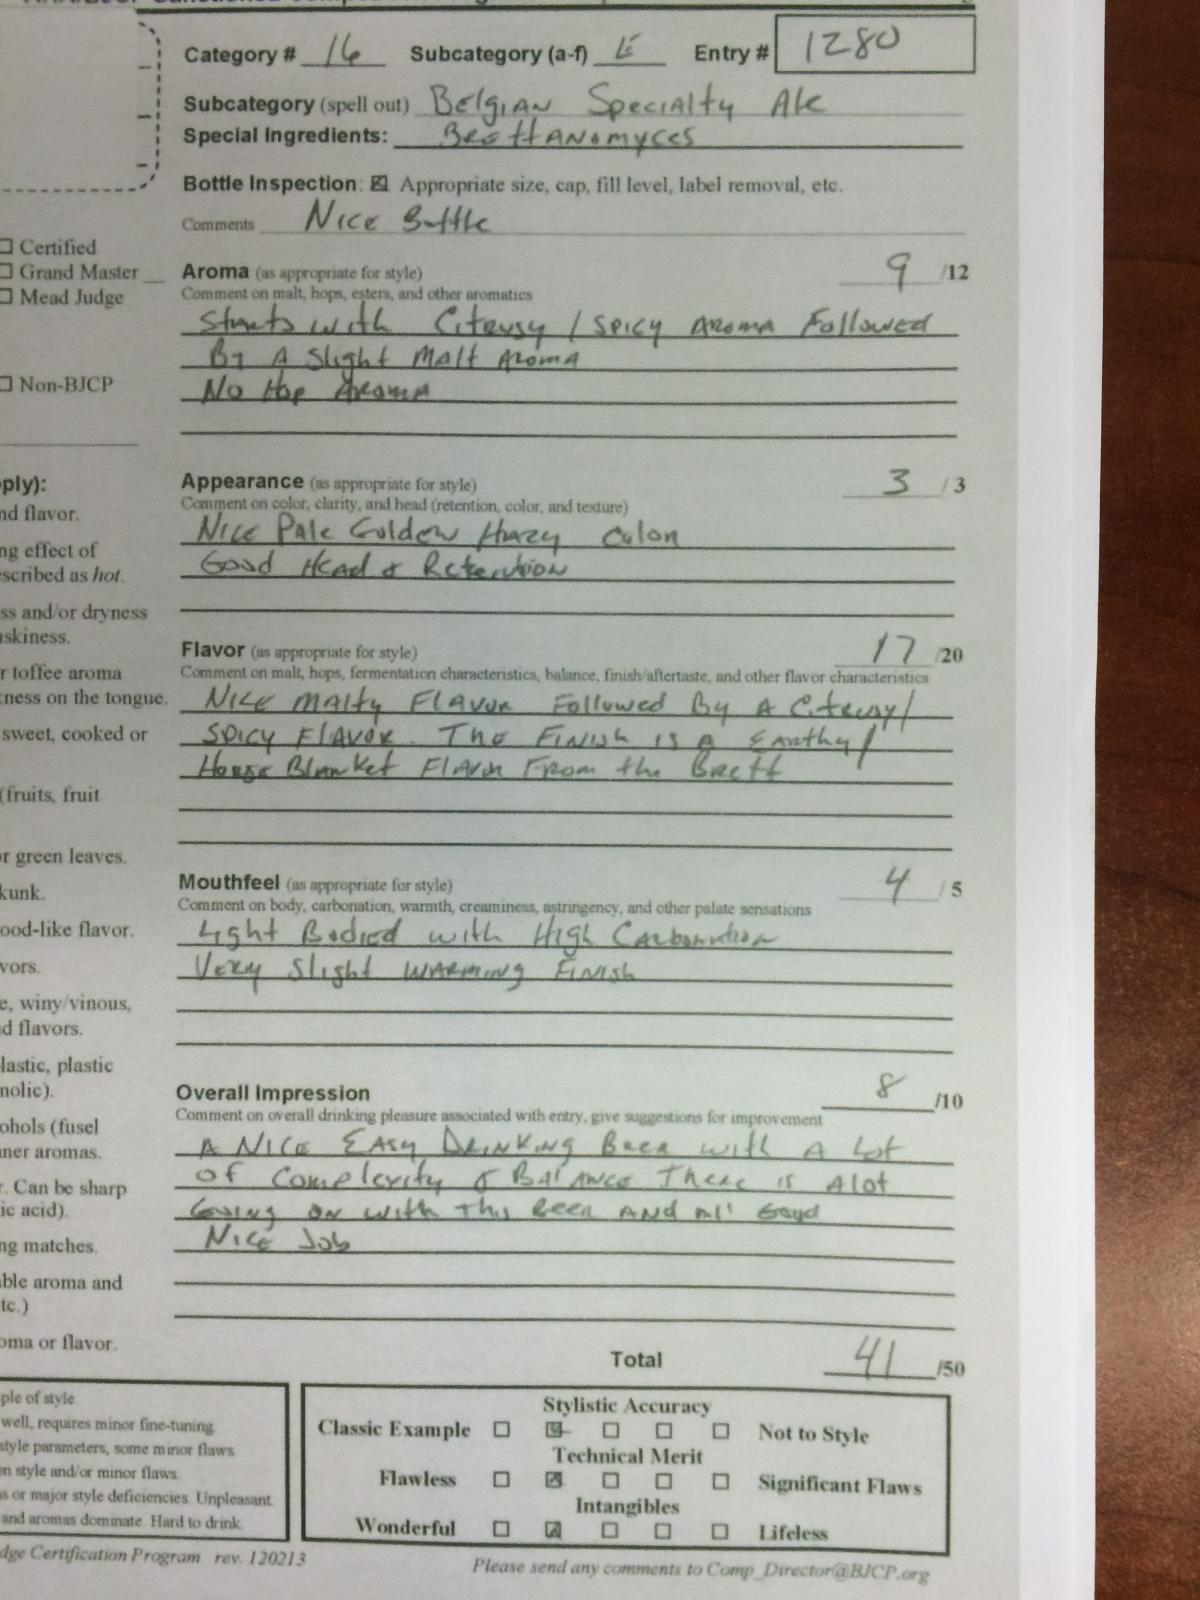 Category # 16 Subcategory (a-f) E Entry # 1280
Subcategory (spell out) Belgian Specialty Ale
Special Ingredients: Brettanomyces
Bottle Inspection: Appropriate size, cap, fill level, label removal, etc.
Comments Nice Bottle
Certified
Grand Master
Mead Judge
Non-BJCP
Aroma (as appropriate for style) 9 /12
Comment on malt, hops, esters, and other aromatics
Starts with Citrusy / Spicy Aroma Followed
By A Slight Malt Aroma
No Hop Aroma
Appearance (as appropriate for style) 3 / 3
Comment on color, clarity, and head (retention, color, and texture)
Nice Pale Golden Hazy Color
Good Head & Retention
ply):
nd flavor.
ng effect of
scribed as hot.
ss and/or dryness
skiness.
Flavor (as appropriate for style) 17 /20
Comment on malt, hops, fermentation characteristics, balance, finish/aftertaste, and other flavor characteristics
Nice Malty Flavor Followed By A Citrusy/
Spicy Flavor. The Finish is A Earthy/
Horse Blanket Flavor From the Brett
r toffee aroma
kness on the tongue.
sweet, cooked or
(fruits, fruit
or green leaves.
Mouthfeel (as appropriate for style) 4 / 5
Comment on body, carbonation, warmth, creaminess, astringency, and other palate sensations
Light Bodied with High Carbonation
Very Slight Warming Finish
kunk.
ood-like flavor.
vors.
e, winy/vinous,
d flavors.
lastic, plastic
nolic).
Overall Impression 8 /10
Comment on overall drinking pleasure associated with entry, give suggestions for improvement
A Nice Easy Drinking Beer with A Lot
of Complexity & Balance There is Alot
Going on with This Beer And All Good
Nice Job
ohols (fusel
ner aromas.
r. Can be sharp
ic acid).
ng matches.
ble aroma and
tc.)
oma or flavor.
Total 41 /50
ple of style
well, requires minor fine-tuning.
style parameters, some minor flaws.
n style and/or minor flaws.
s or major style deficiencies. Unpleasant.
and aromas dominate. Hard to drink.
Stylistic Accuracy
Classic Example Not to Style
Technical Merit
Flawless Significant Flaws
Intangibles
Wonderful Lifeless
dge Certification Program rev. 120213
Please send any comments to Comp_Director@BJCP.org